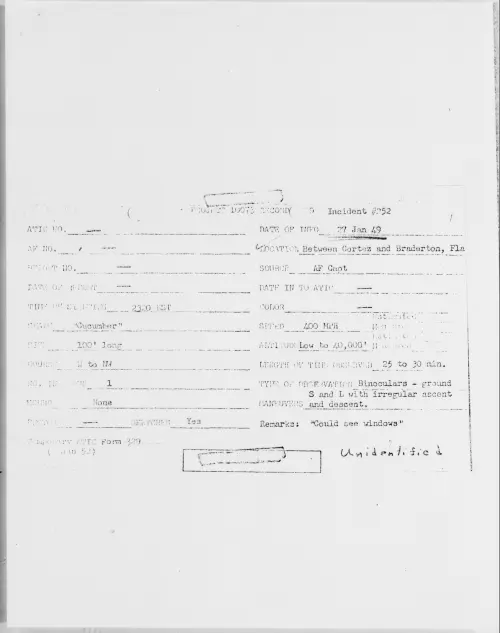 Incident #252
ATIC NO. —
DATE OF INFO 27 Jan 49
AF NO. —
LOCATION Between Cortez and Bradenton, Fla
REPORT NO. —
SOURCE AF Capt
DATE OF REPORT —
DATE IN TO ATIC —
TIME OF SIGHTING 2320 EST
COLOR —
SHAPE "Cucumber"
SPEED 400 MPH
SIZE 100' long
ALTITUDE Low to 40,000'
COURSE to NW
LENGTH OF TIME OBSERVED 25 to 30 min.
NO. IN 1
TYPE OF OBSERVATION Binoculars - ground
SOUND None
MANEUVERS S and L with irregular ascent
and descent.
— Yes
Remarks: "Could see windows"
TEMPORARY ATIC Form 329
( 52)
Unidentified